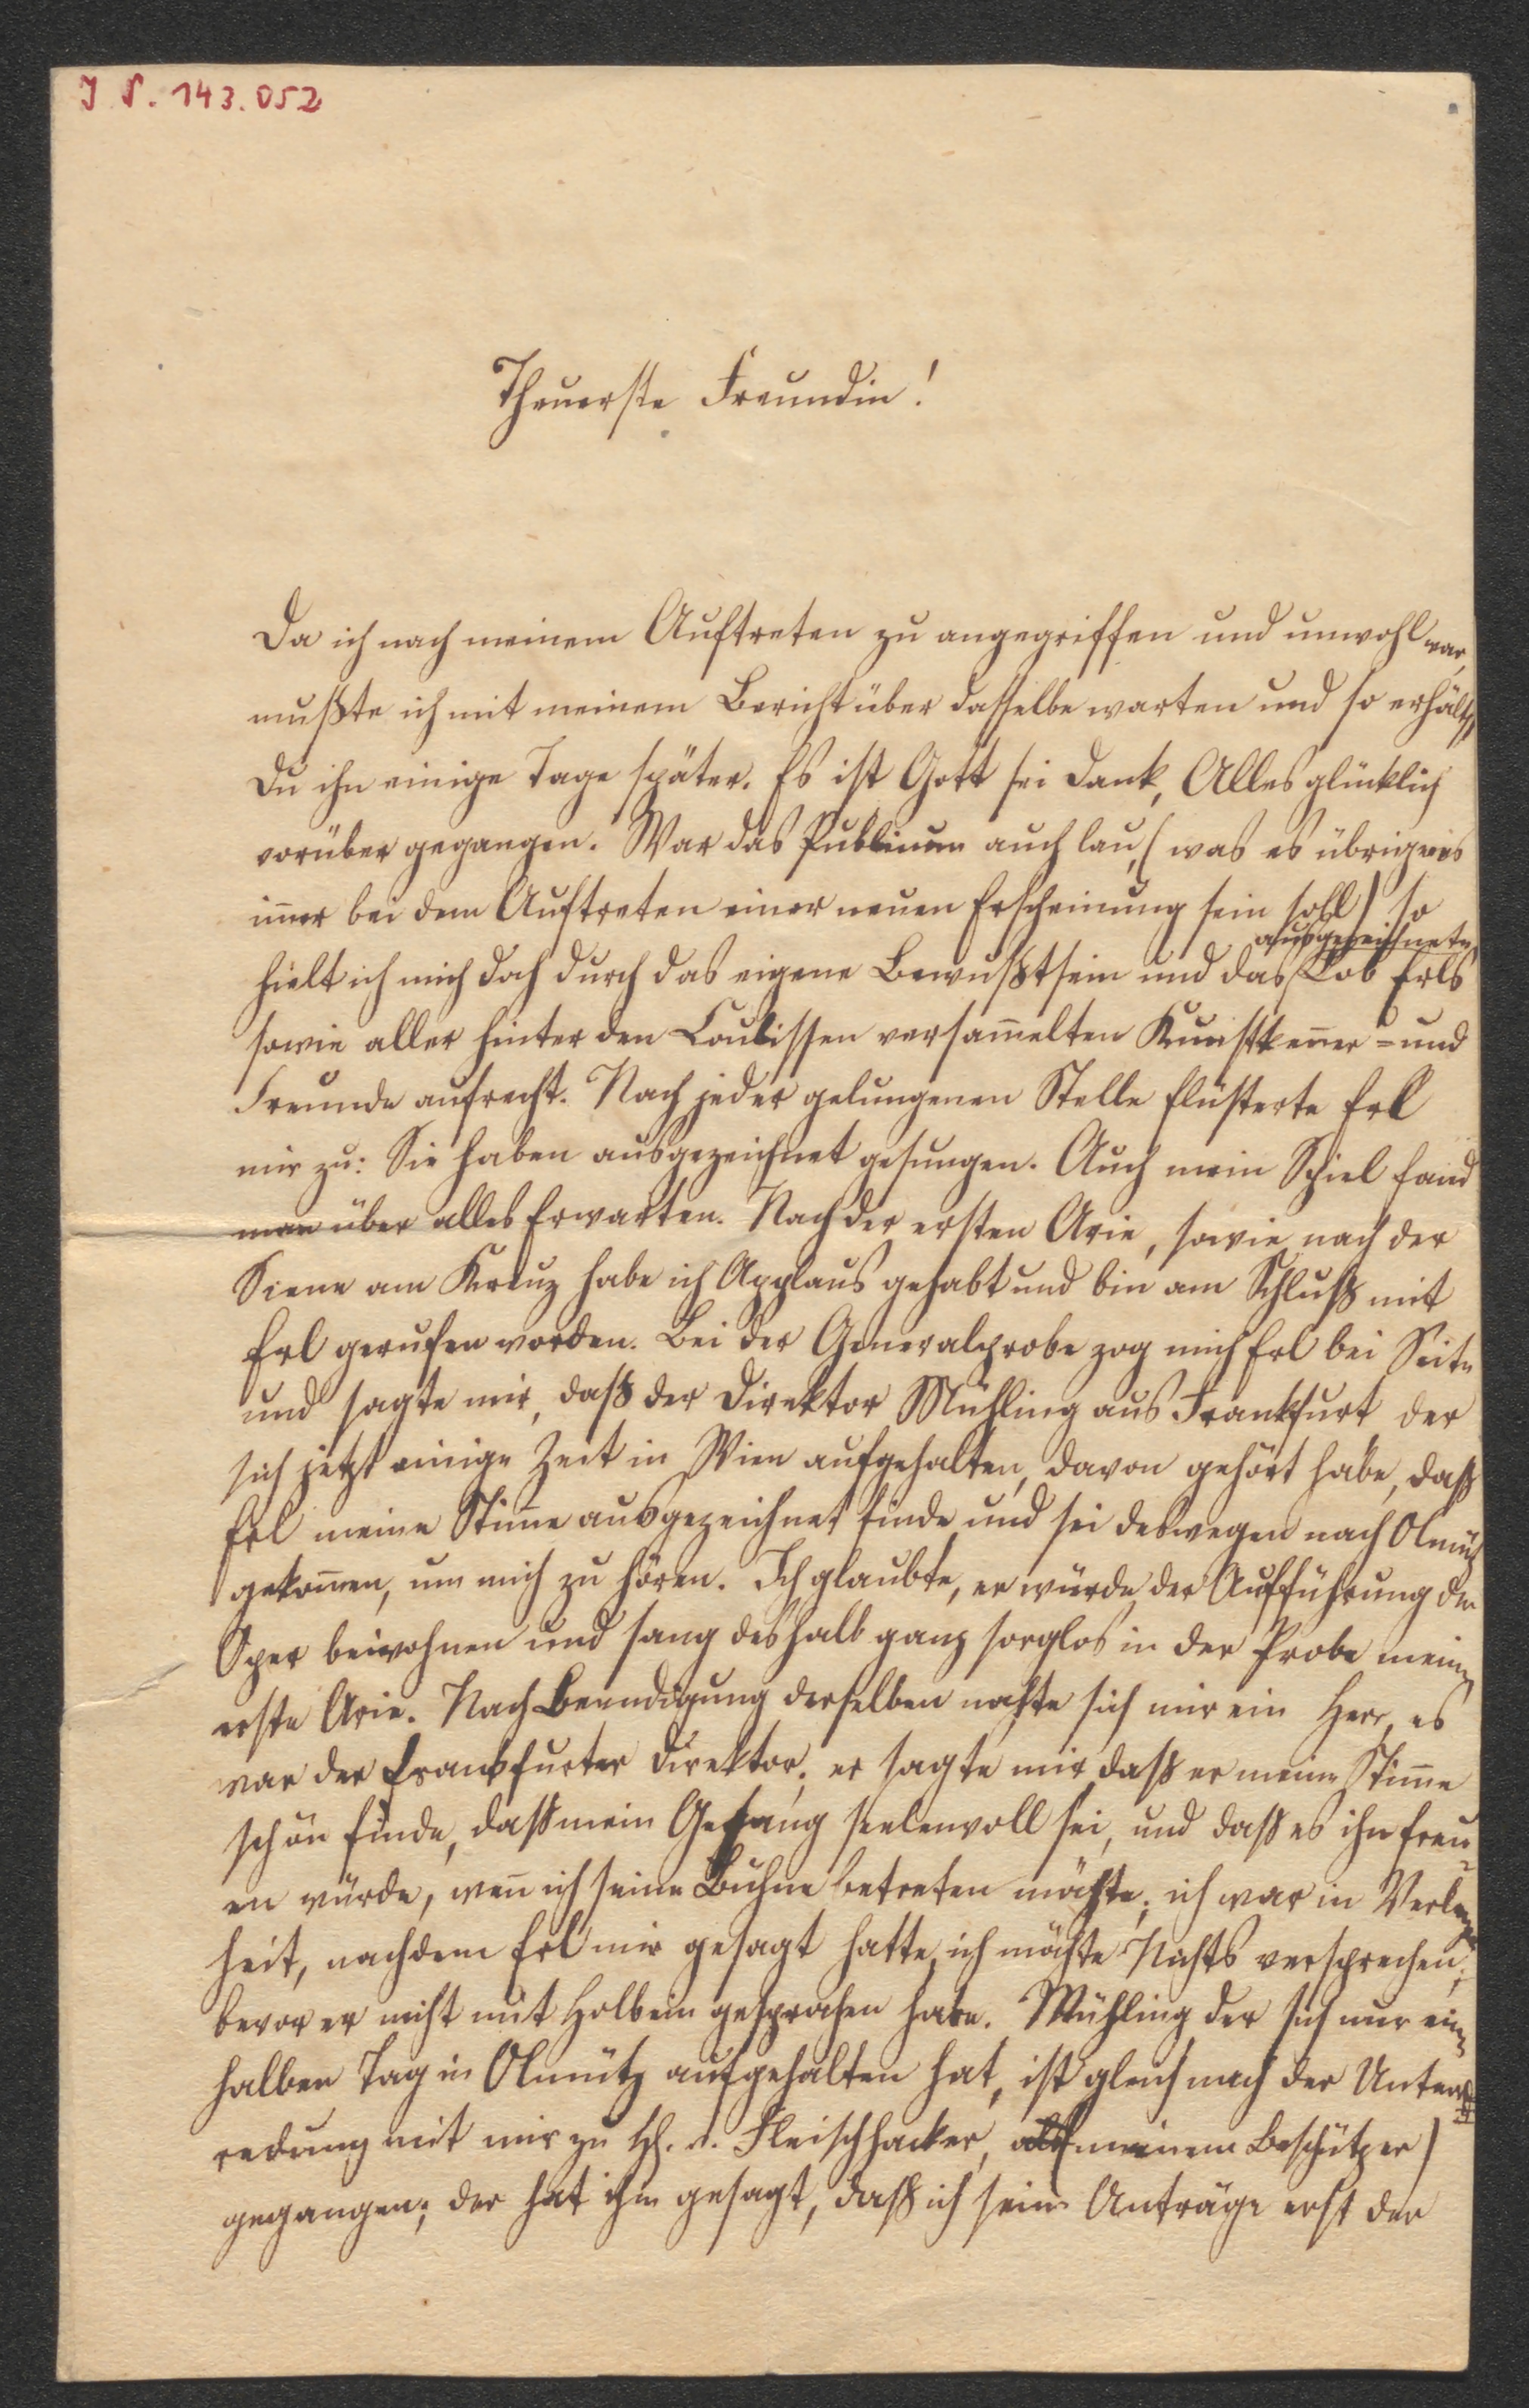 I N. 143.052
Theuerste Freundin!
Da ich nach meinem Auftreten zu angegriffen und unwohl war,
mußte ich mit meinem Bericht über dasselbe warten und so erhälst
Du ihn einige Tage später. Es ist Gott sei Dank, Alles glücklich
vorüber gegangen. War das Publicum auch lau, (was es übrigens
im̅er bei dem Auftreten einer neuen Erscheinung sein soll) so
ausgezeichnete
hielt ich mich doch durch das eigene Bewußtsein und das Lob Erls
sowie aller hinter den Coulissen versam̅elten Kunstken̅er = und
Freunde aufrecht. Nach jeder gelungenen Stelle flüsterte Erl
mir zu: Sie haben ausgezeichnet gesungen. Auch mein Spiel fand
man über alles Erwarten. Nach der ersten Arie, sowie nach der
Scene am Kreuz habe ich Applaus gehabt und bin am Schluß mit
Erl gerufen worden. Bei der Generalprobe zog mich Erl bei Seite
und sagte mir, daß der Direktor Mühling aus Frankfurt der
sich jetzt einige Zeit in Wien aufgehalten, davon gehört habe, daß
Erl meine Stim̅e ausgezeichnet finde und sei deswegen nach Olmütz
gekom̅en, um mich zu hören. Ich glaubte, er würde der Aufführung der
Oper beiwohnen und sang deshalb ganz sorglos in der Probe meine
erste Arie. Nach Beendigung derselben nahte sich mir ein Herr, es
war der Frankfurter Direktor; er sagte mir, daß er meine Stim̅e
schön finde, daß mein Gesang seelenvoll sei, und daß es ihn freu-
en würde, wen̅ ich seine Bühne betreten möchte; ich war in Verlegen
heit, nachdem Erl mir gesagt hatte, ich möchte Nichts versprechen,
bevor er nicht mit Holbein gesprochen habe. Mühling der sich nur einen
halben Tag in Olmütz aufgehalten hat, ist gleich nach der Unter=
redung mit mir zu H. v. Fleischhacker, (meinem Beschützer)
gegangen; der hat ihm gesagt, daß ich seine Anträge erst der